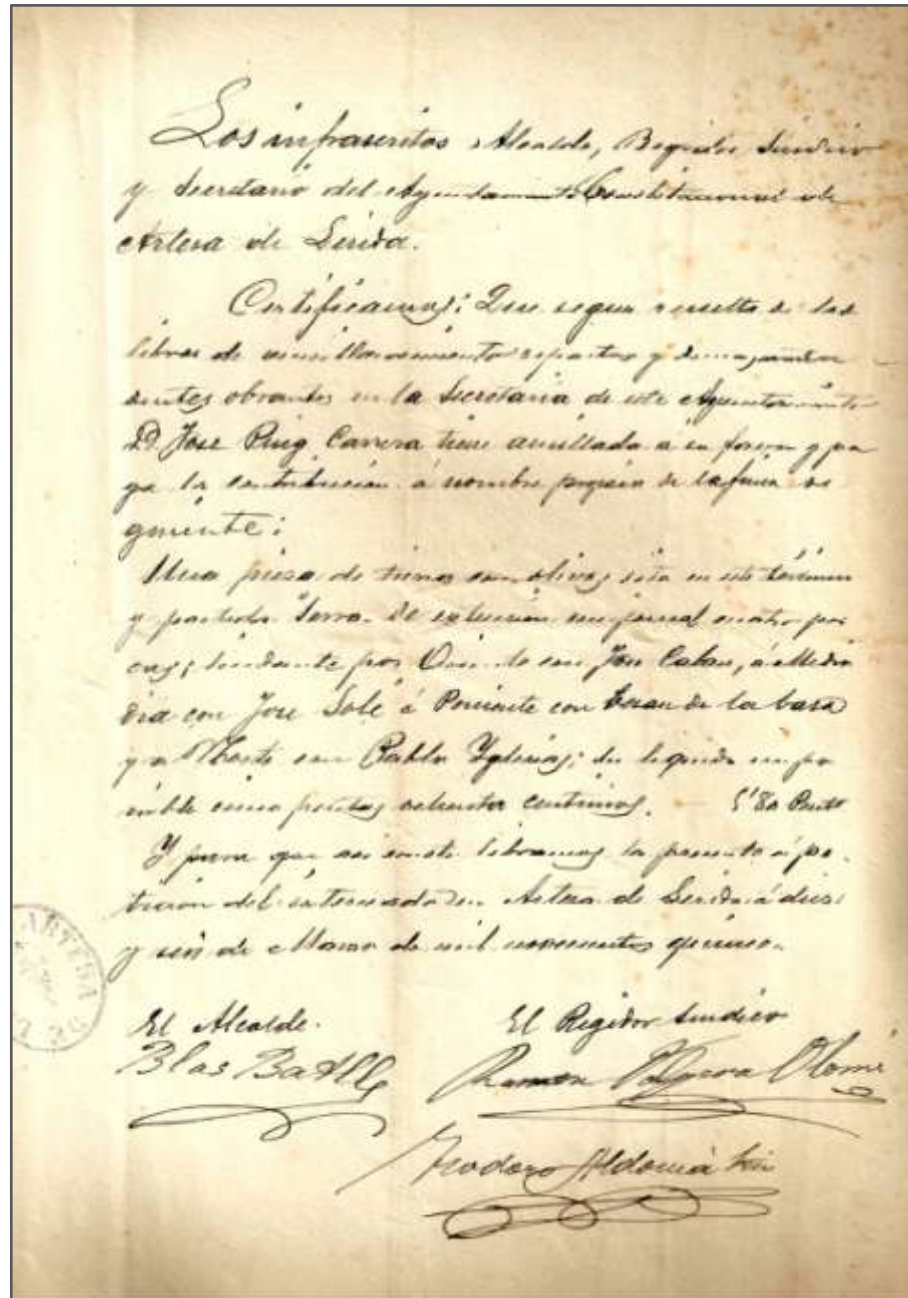 Los infrascritos Alcalde, Regidor Sindico
y Secretario del Ayuntamiento Constitucional de
Artesa de Lerida.
Certificamos: Que segun resulta de los
libros de amillaramiento repartos y demas
obrantes en la Secretaria de este Ayuntamiento
D. Jose Puig Carrera tiene amillarada á su favor y pa
ga la contribucion á nombre propio de la finca si
guiente:
Una pieza de tierra con olivos sita en este término
y partida Serra. De extension un jornal cuatro por
cas; lindante por Oriente con Jose Caban, á Medio
dia con Jose Solé á Poniente con de la basa
y a Norte con Pablo Yglesias; de liquido impo
nible cinco pesetas ochenta centimos. — 5'80 Ptas
Y para que asi conste libramos la presente á pe-
ticion del interesado en Artesa de Lerida á diez
y seis de Marzo de mil novecientos quince.
El Alcalde. El Regidor Sindico
Blas Batlle Ramon
Teodoro Aldomá
ARTESA DE